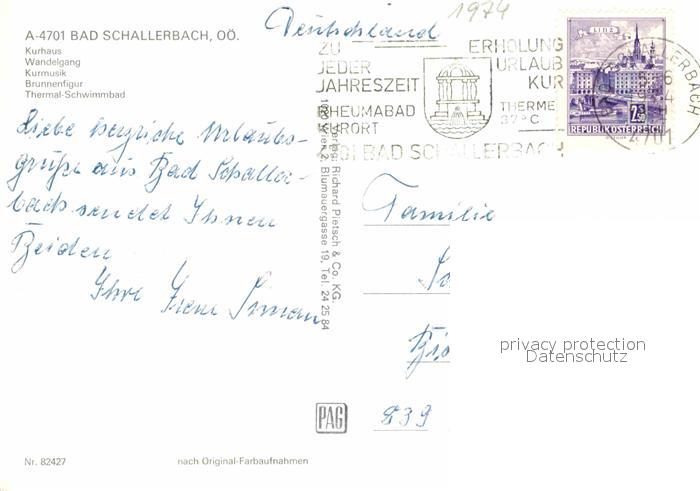 Deutschland
1974
A-4701 BAD SCHALLERBACH, OÖ.
Kurhaus
Wandelgang
Kurmusik
Brunnenfigur
Thermal-Schwimmbad
ZU
JEDER
JAHRESZEIT
RHEUMABAD
KURORT
ERHOLUNG
URLAUB
KUR
THERME
37°C
BAD SCHALLERBACH
LINZ
REPUBLIK ÖSTERREICH
4701
Liebe herzliche Urlaubs-
grüße aus Bad Schaller-
bach sendet Ihnen
Beiden
Ihre
Verlag: Richard Pietsch & Co. KG.
Blumauergasse 19, Tel. 24 25 84
Familie
839
privacy protection
Datenschutz
PAG
Nr. 82427
nach Original-Farbaufnahmen